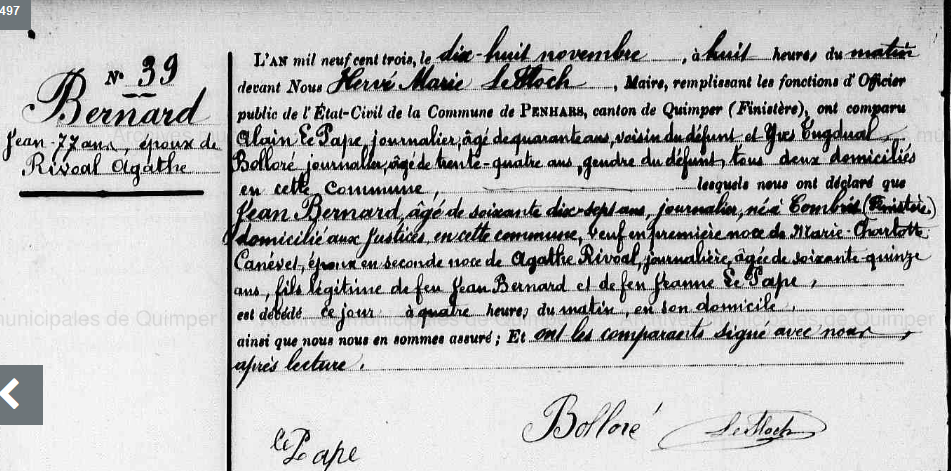 497
N° 39
Bernard
Jean 77 ans, époux de
Rivoal Agathe
L'AN mil neuf cent trois, le dix-huit novembre, à huit heures du matin
devant Nous Hervé Marie Le Floch, Maire, remplissant les fonctions d'Officier
public de l'État-Civil de la Commune de PENHARS, canton de Quimper (Finistère), ont comparu
Alain Le Pape, journalier, âgé de quarante ans, voisin du défunt et Yves Tugdual
Bolloré, journalier, âgé de trente-quatre ans, gendre du défunt, tous deux domiciliés
en cette Commune, lesquels nous ont déclaré que
Jean Bernard, âgé de soixante dix-sept ans, journalier, né à Combrit (Finistère)
domicilié aux Justices, en cette commune, veuf en première noce de Marie-Charlotte
Canévet, époux en seconde noce de Agathe Rivoal, journalière, âgée de soixante-quinze
ans, fils légitime de feu Jean Bernard et de feu Jeanne Le Pape,
est décédé ce jour à quatre heures du matin, en son domicile
ainsi que nous nous en sommes assuré; Et ont les comparants signé avec nous,
après lecture.
Bolloré
Le Floch
le Pape
municipales de Quimper
Archives municipales de Quimper